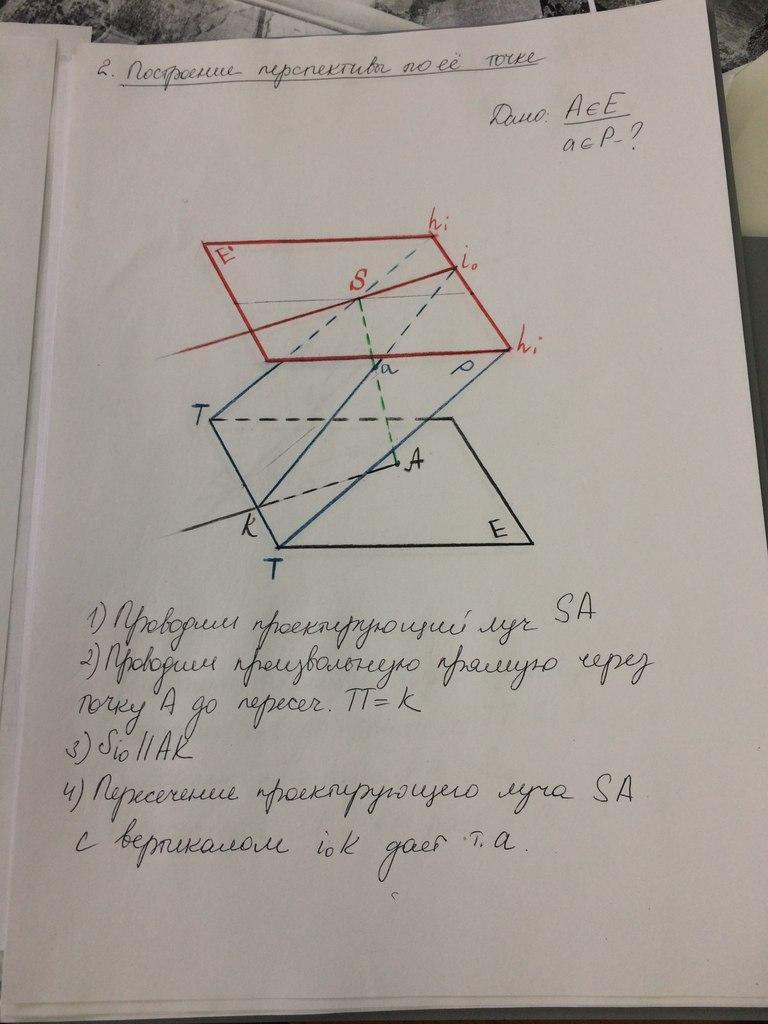 2. Построение перспективы по её точке
Дано: A∈E
a∈P-?
hi
E'
i₀
S
hi
a
P
T
A
K
E
T
1) Проводим проектирующий луч SA
2) Проводим произвольную прямую через
точку A до пересеч. TT = K
3) Si₀ || AK
4) Пересечение проектирующего луча SA
с вертикалом i₀K дает т. a.